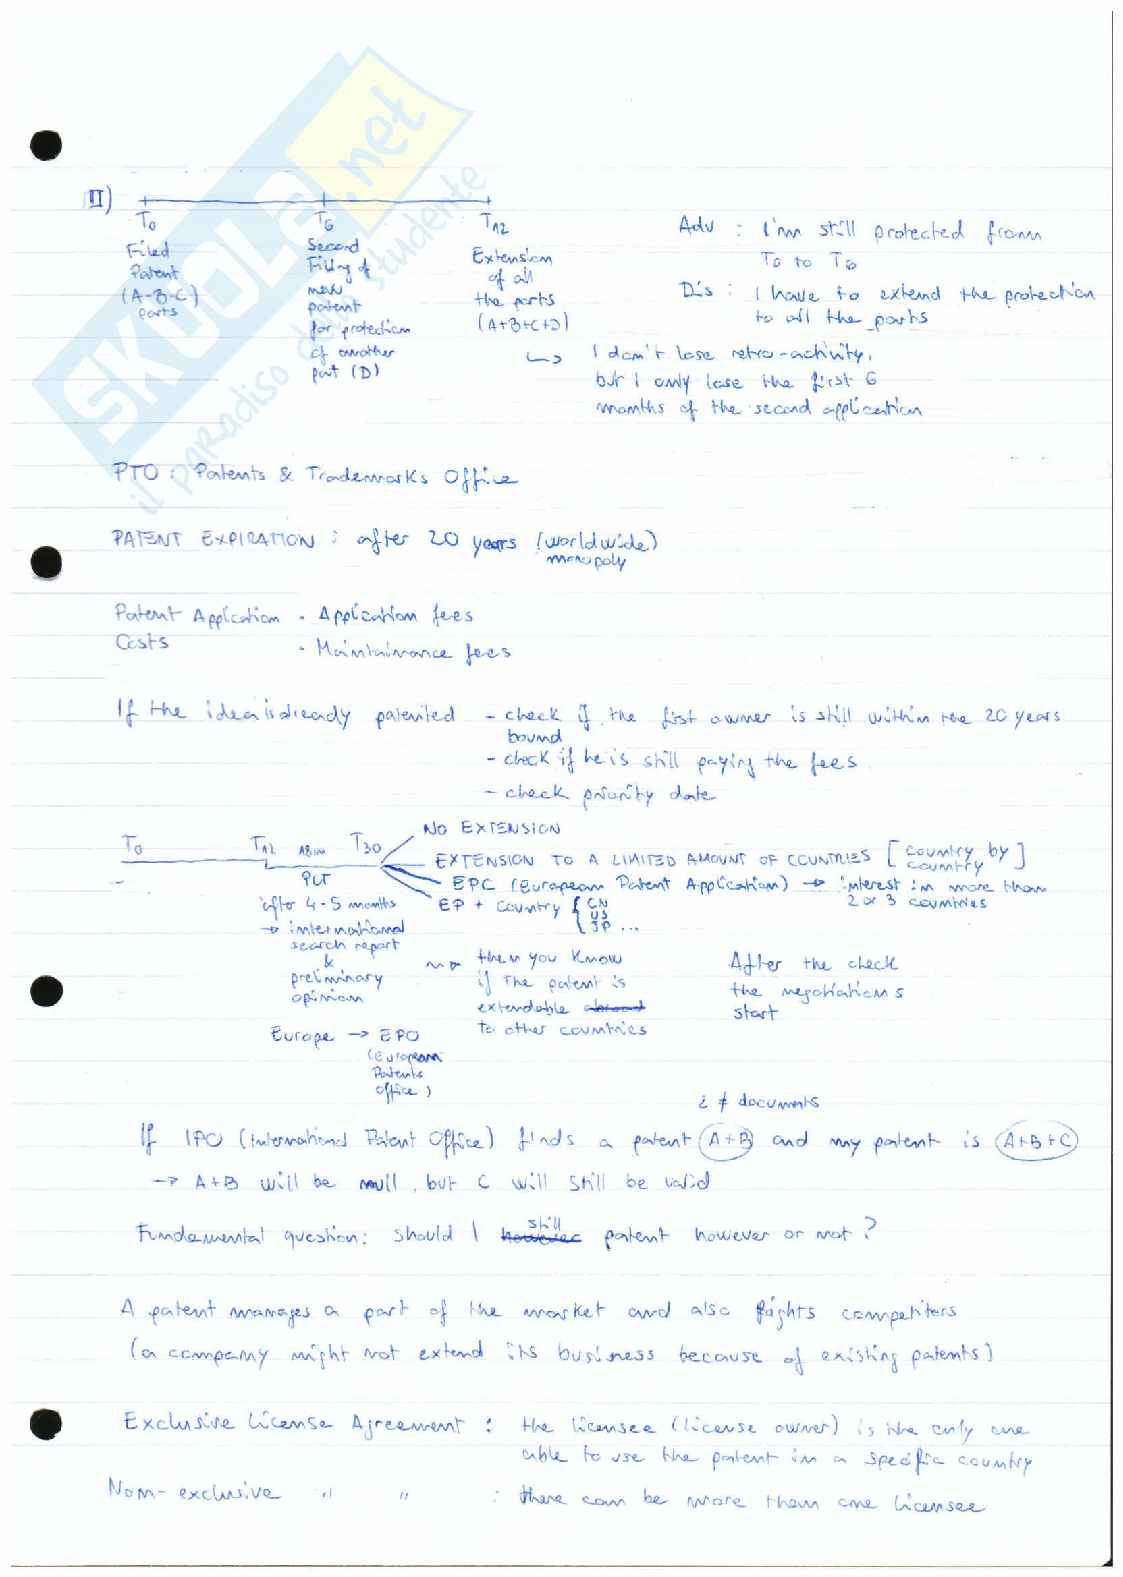 SKUOLA.net
il paradiso dello studente
II)
T0 T6 T12
Filed Patent (A-B-C) parts
Second Filing of new patent for protection of another part (D)
Extension of all the parts (A+B+C+D)
Adv : I'm still protected from
T0 to T6
Dis : I have to extend the protection
to all the parts
↳ I don't lose retro-activity,
but I only lose the first 6
months of the second application
PTO : Patents & Trademarks Office
PATENT EXPIRATION : after 20 years (worldwide)
monopoly
Patent Application · Application fees
Costs
· Maintainance fees
If the idea is already patented - check if the first owner is still within the 20 years
bound
- check if he is still paying the fees
- check priority date
T0 T12 18m T30
PCT
NO EXTENSION
EXTENSION TO A LIMITED AMOUNT OF COUNTRIES [country by country]
EPC (European Patent Application) → interest in more than
2 or 3 countries
EP + country { CN
US
JP ...
after 4-5 months
→ international
search report
&
preliminary
opinion
~> then you know
if the patent is
extendable abroad
to other countries
After the check
the negotiations
start
Europe → EPO
(European
Patents
Office)
≠ documents
If IPO (International Patent Office) finds a patent (A+B) and my patent is (A+B+C)
→ A+B will be null, but C will still be valid
still
Fundamental question: should I however patent however or not?
A patent manages a part of the market and also fights competitors
(a company might not extend its business because of existing patents)
Exclusive License Agreement : the licensee (license owner) is the only one
able to use the patent in a specific country
Non-exclusive " " : there can be more than one licensee